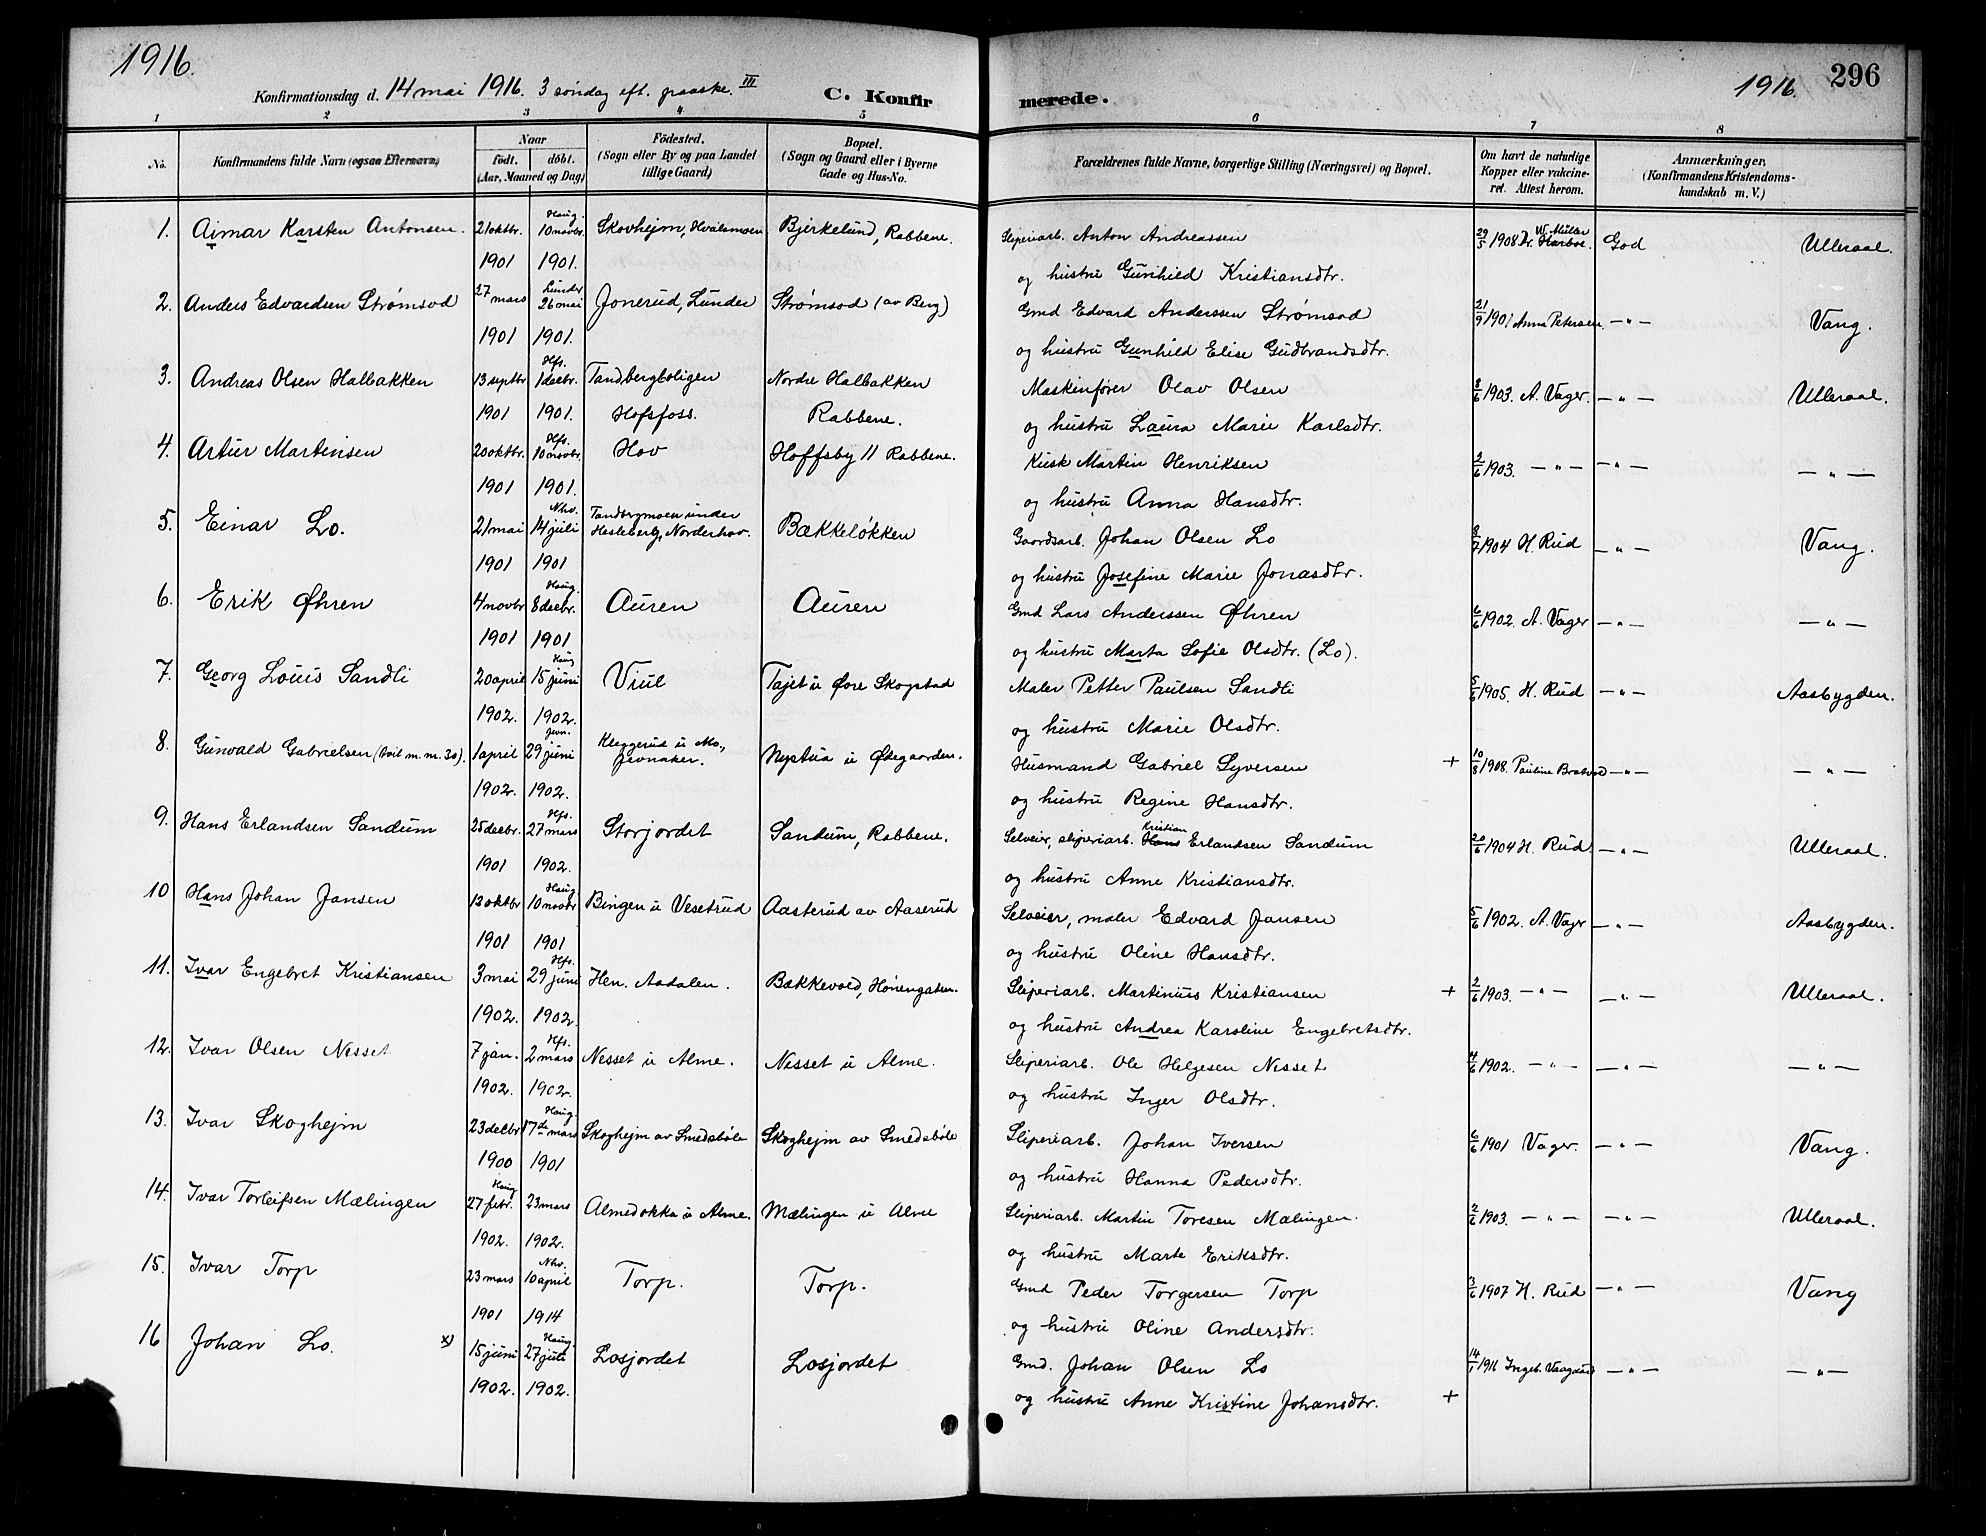 1916.
Konfirmationsdag d. 14 mai 1916. 3 søndag eft. paaske. III
C. Konfir
merede.
1916.
296
1 2 3 4 5 6 7 8
No.
Konfirmandens fulde Navn (ogsaa Efternavn)
Naar
født. døbt.
(Aar, Maaned og Dag)
Fødested.
(Sogn eller By og paa Landet
tillige Gaard)
Bopæl.
(Sogn og Gaard eller i Byerne
Gade og Hus-No.
Forældrenes fulde Navne, borgerlige Stilling (Næringsvei) og Bopæl.
Om havt de naturlige
Kopper eller vakcine-
ret. Attest herom.
Anmærkninger,
(Konfirmandens Kristendoms-
kundskab m. V.)
1. Aimar Karsten Antonsen. 21 oktbr. 1901 Haug. 10 novbr. 1901. Skovhejm, Hvalsmoen Bjerkelund, Rabbene. Sliperiarb. Anton Andreassen
og hustru Gunhild Kristiansdtr. 29/5 1908 Dr. W. Müller Harboe. God Ulleraal.
2. Anders Edvardsen Strømsod 27 mars 1901 Lunder 26 mai 1901. Jonerud, Lunder Strømsod (av Berg) Gmd Edvard Anderssen Strømsod
og hustru Gunhild Elise Gudbrandsdtr. 21/9 1901 Anna Petersen. —"— Vang.
3. Andreas Olsen Halbakken 13 septbr 1901 Hfs. 1 decbr. 1901. Tandbergboligen
Hofsfoss. Nordre Halbakken
Rabbene. Maskinfører Olav Olsen
og hustru Laura Marie Karlsdtr. 8/6 1903. A. Vager. —"— Ulleraal.
4. Artur Martinsen 20 oktbr. 1901 Hfs. 10 novbr. 1901. Hov Hoffsby 11 Rabbene. Kusk Martin Henriksen
og hustru Anna Hansdtr. 2/6 1903. —"— —"— —"—
5. Einar Lo. 21 mai 1901 Nhv. 14 juli 1901 Tandbergmoen under
Hesleberg, Norderhov. Bækkeløkken Gaardsarb. Johan Olsen Lo
og hustru Josefine Marie Jonasdtr. 8/7 1904 H. Rud —"— Vang.
6. Erik Øhren 4 novbr 1901 Haug. 8 decbr. 1901. Auren Auren Gmd Lars Anderssen Øhren
og hustru Marta Sofie Olsdtr. (Lo). 6/6 1902. A. Vager —"— —"—
7. Georg Louis Sandli 20 april 1902. Haug 15 juni 1902. Viul Tajet u Øvre Skogstad Maler Petter Paulsen Sandli
og hustru Marie Olsdtr. 5/6 1905. H. Rud —"— Aasbygden.
8. Gunvald Gabrielsen (tvil. m. nr. 30). 1 april 1902. Jevn. 29 juni 1902. Kleggerud u Mo,
Jevnaker. Nystua u Ødegaarden. Husmand Gabriel Syversen
og hustru Regine Hansdtr. + 10/8 1908. Pauline Bratvold —"— —"—
9. Hans Erlandsen Sandum 25 decbr. 1901 Hfs. 27 mars 1902. Storjordet Sandum, Rabbene. Selveier, sliperiarb. Hans Kristian Erlandsen Sandum
og hustru Anne Kristiansdtr. 20/6 1904 H. Rud. —"— Ulleraal.
10 Hans Johan Jansen 12 oktbr 1901 Haug 10 novbr 1901 Bingen u Vesetrud Aasterud av Aaserud Selveier, maler Edvard Jansen
og hustru Oline Hansdtr. 5/6 1902. A. Vager —"— Aasbygden.
11. Ivar Engebret Kristiansen 3 mai 1902. Hfs. 29 juni 1902. Hen. Aadalen. Bækkevold, Hønengaten. Sliperiarb. Martinius Kristiansen
og hustru Andrea Karoline Engebretsdtr. + 2/6 1903. —"— —"— Ulleraal.
12. Ivar Olsen Nesset 7 jan. 1902. Hfs. 2 mars 1902. Nesset u Alme. Nesset u Alme. Sliperiarb. Ole Helgesen Nesset
og hustru Inger Olsdtr. 4/6 1902. —"— —"— —"—
13. Ivar Skoghejm 23 decbr 1900 Haug. 17de mars 1901 Skoghejm av Smedsbøle Skoghejm av Smedsbøle Sliperiarb. Johan Iversen
og hustru Hanna Pedersdtr. 6/6 1901 Vager. —"— Vang.
14. Ivar Torleifsen Mælingen 27 febr. 1902. Haug 23 mars 1902. Almedokka u Alme. Mælingen u Alme Sliperiarb. Martin Toresen Mælingen.
og hustru Marte Eriksdtr. 2/6 1903. —"— —"— Ulleraal.
15. Ivar Torp 23 mars 1901 Nhv. 10 april 1914 Torp. Torp. Gmd Peder Torgersen Torp
og hustru Oline Andersdtr. 3/6 1907 H. Rud —"— Vang
16 Johan Lo. x) 15 juni 1902. Haug 27 juli 1902. Losjordet Losjordet Gmd. Johan Olsen Lo
og hustru Anne Kristine Johansdtr. + 14/1 1916 Ingeb. Vaagaard —"— —"—